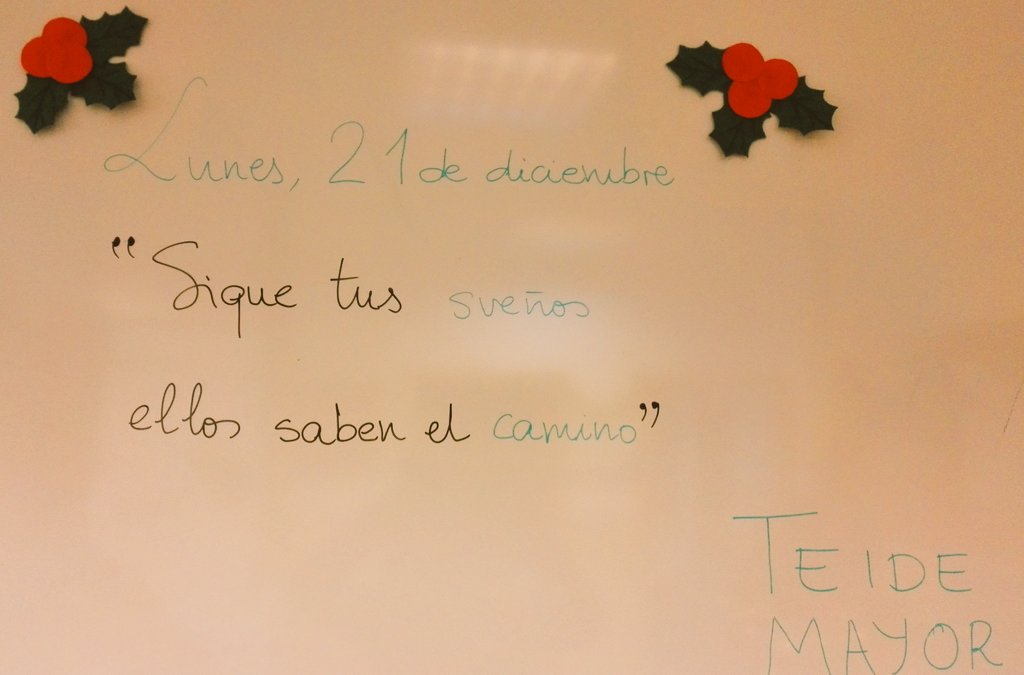 Lunes, 21 de diciembre
"Sigue tus sueños
ellos saben el camino"
TEIDE
MAYOR